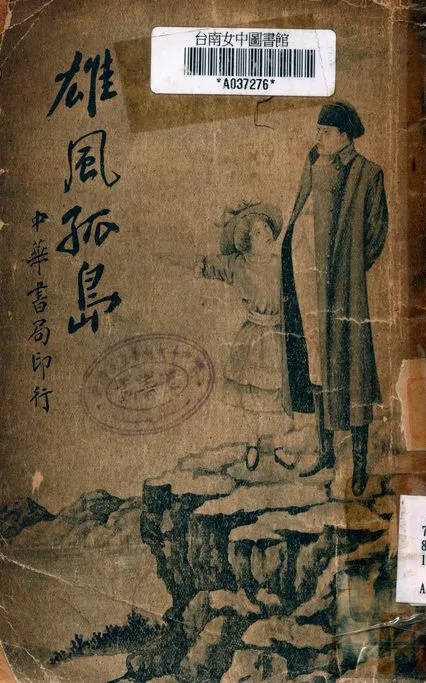 台南女中圖書館
*A037276*
雄風孤島
中華書局印行
7
8
1
A